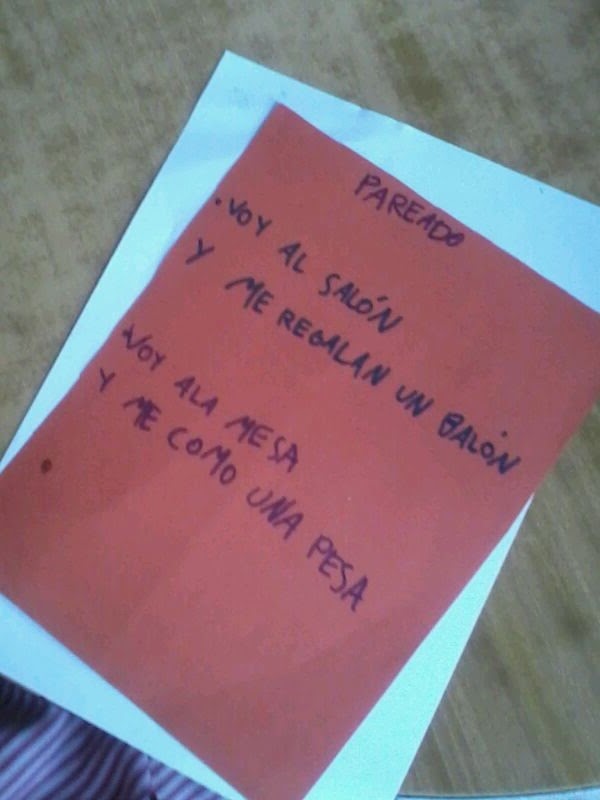 PAREADO
.VOY AL SALÓN
Y ME REGALAN UN BALÓN
.VOY ALA MESA
Y ME COMO UNA PESA